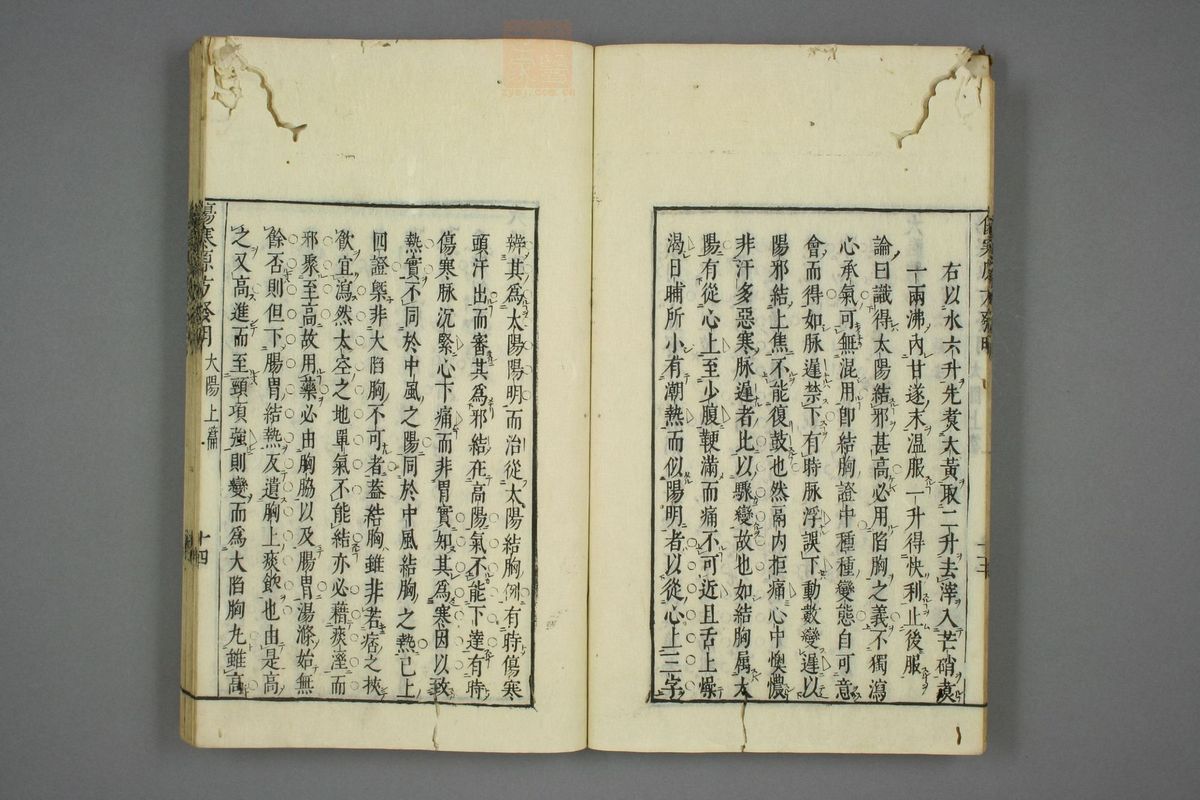 右以水六升先煑大黃取二升去滓入芒硝煑
一兩沸內甘遂末温服一升得快利止後服
論曰識得太陽結邪甚高必用陷胸之義不獨瀉
心承氣可無混用卽結胸證中種種變態自可意
會而得如脉遲禁下有時脉浮誤下動數變遲以
陽邪結上焦不能復鼓也然鬲內拒痛心中懊憹
非汗多惡寒脉遲者比以驟變故也如結胸属太
陽有從心上至少腹鞕滿而痛不可近且舌上燥
渴日晡所小有潮熱而似陽明者以從心上三字
辨其爲太陽陽明而治從太陽結胸例有時傷寒
頭汗出而審其爲邪結在高陽氣不能下達有時
傷寒脉沉緊心下痛而非胃實知其爲寒因以致
熱實不同於中風之陽同於中風結胸之熱已上
四證槩非大陷胸不可者葢結胸雖非若痞之挾
飮宜瀉然太空之地單氣不能結亦必藉痰溼而
邪聚至高故用藥必由胸脇以及腸胃湯滌始無
餘否則但下腸胃結熱反遺胸上痰飮也由是高
之又高進而至頸項強則變而爲大陷胸丸雖高
傷寒原方發明 太陽上篇 十四